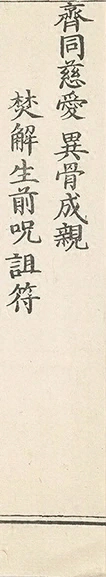 齊同慈愛 異骨成親
焚解生前呪詛符